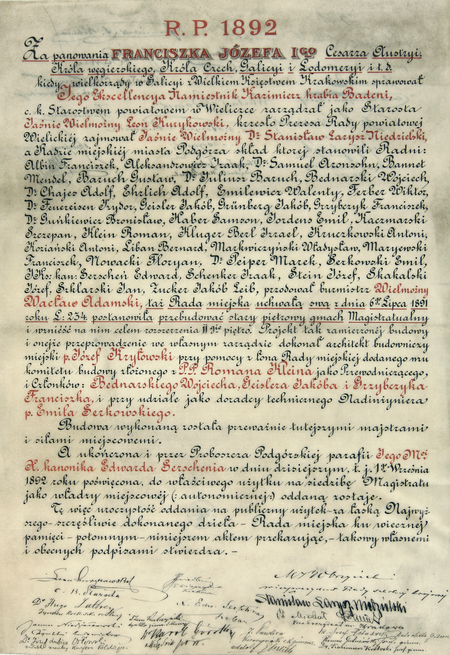 R. P. 1892
Za panowania FRANCISZKA JÓZEFA I GO Cesarza Austryi,
Króla węgierskiego, Króla Czech, Galicyi i Lodomeryi i t. d.
kiedy wielkorządy w Galicyi i Wielkiem Księstwem Krakowskim sprawował
Jego Ekscellencya Namiestnik Kazimierz hrabia Badeni,
c. k. Starostwem powiatowem w Wieliczce zarządzał jako Starosta
Jaśnie Wielmożny Leon Kurykowski, krzesło Prezesa Rady powiatowej
Wielickiej zajmował Jaśnie Wielmożny Dr. Stanisław Larysz Niedzielski,
a Radzie miejskiej miasta Podgórza skład której stanowili Radni:
Albin Franciszek, Aleksandrowicz Izaak, Dr. Samuel Aronsohn, Bannet
Mendel, Baruch Gustaw, Dr. Juliusz Baruch, Bednarski Wojciech,
Dr. Chajes Adolf, Ehrlich Adolf, Emilewicz Walenty, Ferber Wiktor,
Dr. Feuereisen Izydor, Geisler Jakób, Grünberg Jakób, Grzybczyk Franciszek,
Dr. Guńkiewicz Bronisław, Haber Samson, Jordens Emil, Kaczmarski
Szczepan, Klein Roman, Kluger Berl Izrael, Kruczkowski Antoni,
Koziański Antoni, Liban Bernard, Markwiczyński Władysław, Maryewski
Franciszek, Nowacki Floryan, Dr. Peiper Marek, Serkowski Emil,
kan: Serschen Edward, Schenker Izaak, Stein Józef, Skakalski
Józef, Szklarski Jan, Zucker Jakób Leib, przodował burmistrz Wielmożny
Wacław Adamski, taż Rada miejska uchwałą swą z dnia 6go Lipca 1891
roku L: 234 postanowiła przebudować stary piętrowy gmach Magistratualny
i wznieść na nim celem rozszerzenia II gie piętro. Projekt tak zamierzonej budowy
i onejże przeprowadzenie we własnym zarządzie dokonał architekt budowniczy
miejski p. Józef Kryłowski przy pomocy z łona Rady miejskiej dodanego mu
komitetu budowy złożonego z P.P. Romana Kleina jako Przewodniczącego,
i Członków: Bednarskiego Wojciecha, Geislera Jakóba i Grzybczyka
Franciszka, i przy udziale jako doradcy technicznego Nadinżyniera
p. Emila Serkowskiego.
Budowa wykonaną została przeważnie tutejszymi majstrami
i siłami miejscowemi.
A ukończona i przez Proboszcza Podgórskiej parafii Jego Mci
X. kanonika Edwarda Serschenia w dniu dzisiejszym, t. j. 1go Września
1892 roku poświęcona, do właściwego użytku na siedzibę Magistratu
jako władzy miejscowej (: autonomicznej :) oddaną zostaje.
Tę więc uroczystość oddania na publiczny użytek za łaską Najwyż-
szego szczęśliwie dokonanego dzieła - Rada miejska ku wiecznej
pamięci potomnym niniejszem aktem przekazując, takowy własnemi
i obecnych podpisami stwierdza.
Stanisław Larysz Niedzielski